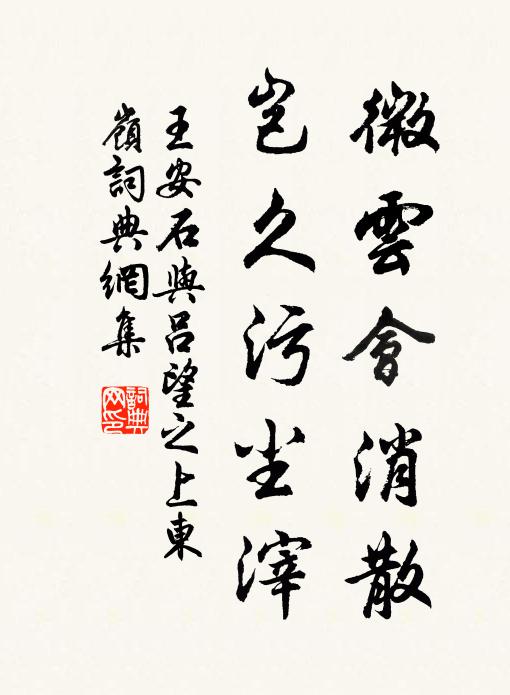 微雲會消散
豈久污尘滓
王安石與吕望之上東
嶺詞典網集
詞典
网印